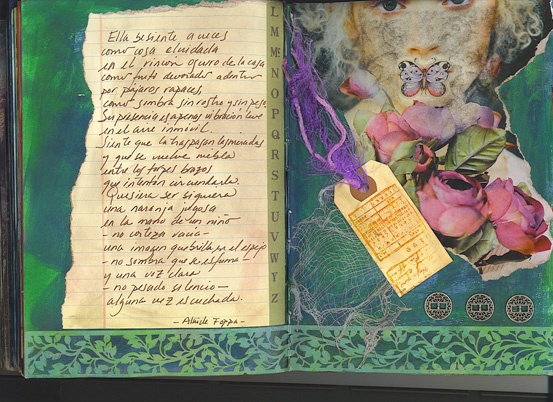 Ella se siente a veces
como cosa olvidada
en el rincón oscuro de la casa
como fruto devorado adentro
por pájaros rapaces,
como sombra sin rostro y sin peso
Su presencia es apenas vibración leve
en el aire inmóvil.
Siente que la traspasan las miradas
y que se vuelve niebla
entre los torpes brazos
que intentan circundarla.
Quisiera ser siquiera
una naranja jugosa
en la mano de un niño
- no corteza vacía -
una imagen que brilla en el espejo
- no sombra que se esfuma -
y una voz clara
- no pesado silencio -
alguna vez escuchada.
- Alaíde Foppa -
L
M
Mc
N
O
P
Q
R
S
T
U
V
W
Y
Z